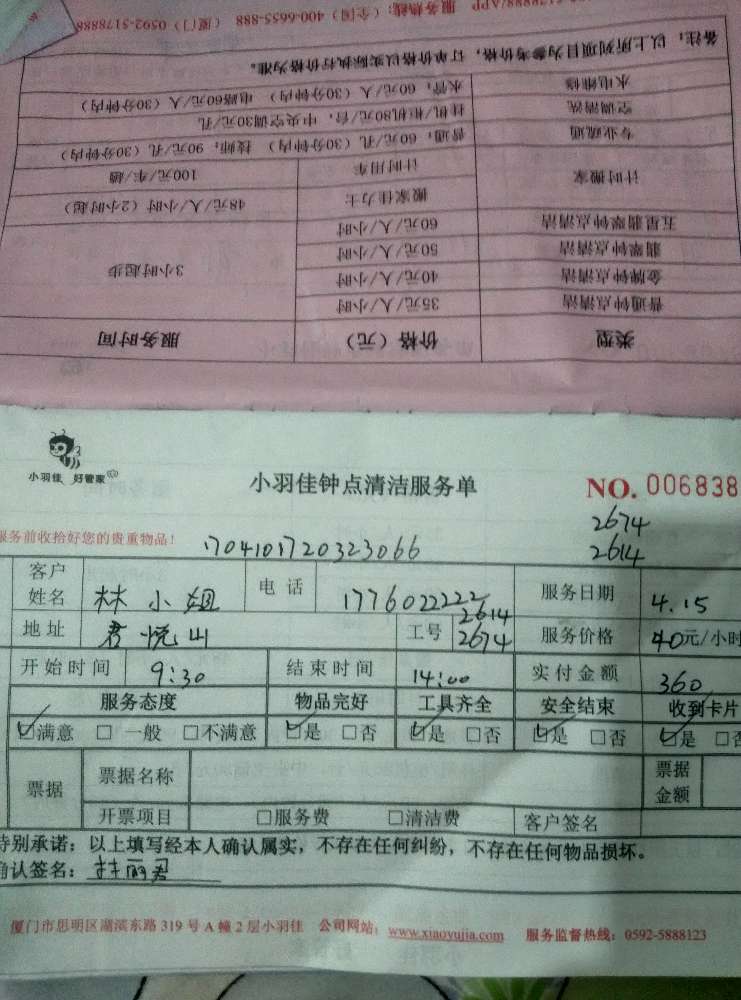 服务热线：（全国）400-6655-888 （厦门）0592-5178888
备注：以上所列项目为参考价格，订单价格以实际执行价格为准。
水电维修 水管：60元/人（30分钟内） 电路60元/人（30分钟内）
空调清洗 挂机/柜机80元/台，中央空调30元/孔
专业疏通 普通：60元/孔（30分钟内） 技师：90元/孔（30分钟内）
计时搬家 计时用车 100元/车/趟
搬家佳力士 48元/人/小时（2小时起）
五星翡翠钟点清洁 60元/人/小时
翡翠钟点清洁 50元/人/小时 3小时起步
金牌钟点清洁 40元/人/小时
普通钟点清洁 35元/人/小时
类型 价格（元） 服务时间
小羽佳 好管家
小羽佳钟点清洁服务单
NO. 006838
2674
2614
服务前收拾好您的贵重物品！
1704101720323066
客户姓名 林小姐 电话 1776022222 服务日期 4.15
地址 君悦山 工号 2614 2674 服务价格 40元/小时
开始时间 9:30 结束时间 14:00 实付金额 360
服务态度 物品完好 工具齐全 安全结束 收到卡片
☑满意 □一般 □不满意 ☑是 □否 ☑是 □否 ☑是 □否 ☑是 □否
票据 票据名称 票据金额
开票项目 □服务费 □清洁费 客户签名
特别承诺：以上填写经本人确认属实，不存在任何纠纷，不存在任何物品损坏。
确认签名：林丽君
厦门市思明区湖滨东路319号A幢2层小羽佳 公司网站：www.xiaoyujia.com 服务监督热线：0592-5888123